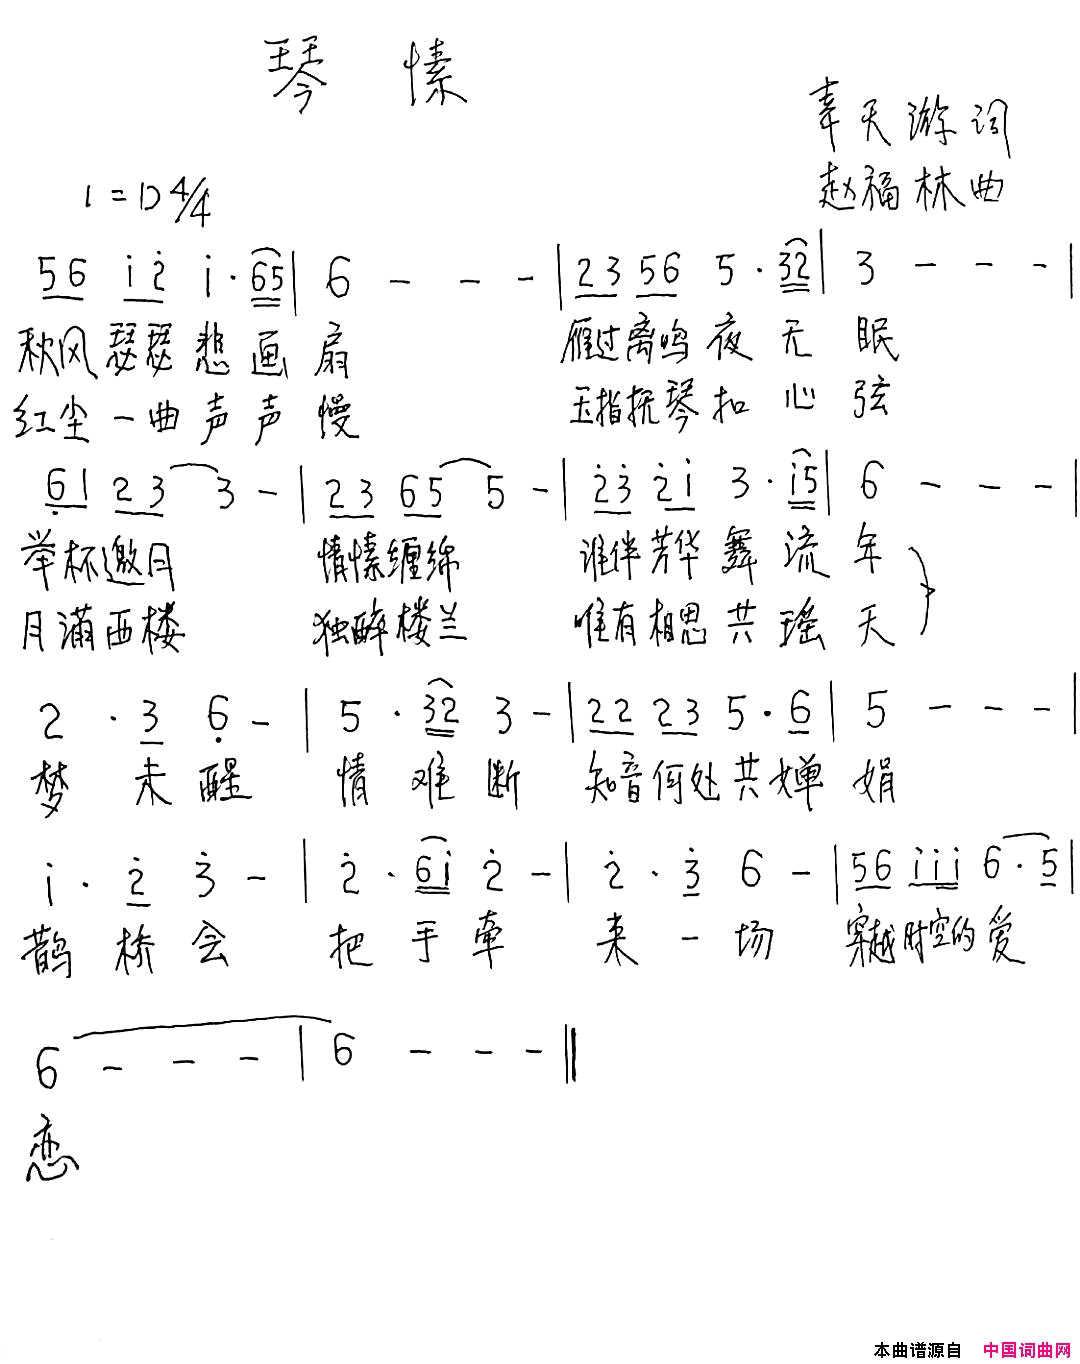 琴愫
辜天游词
赵福林曲
1=D 4/4
56 i̇2̇ i̇·65 | 6 - - - | 23 56 5·32 | 3 - - - |
秋风瑟瑟悲画扇 雁过离鸣夜无眠
红尘一曲声声慢 玉指抚琴扣心弦
6̣1 23 3 - | 23 65 5 - | 2̇3̇ 2̇i̇ 3·i̇5 | 6 - - - |
举杯邀月 情愫缠绵 谁伴芳华舞流年
月满西楼 独醉楼兰 唯有相思共瑶天
2·3 6̣ - | 5·32 3 - | 22 23 5·6̣ | 5 - - - |
梦未醒 情难断 知音何处共婵娟
i̇·2̇ 3̇ - | 2̇·6i̇ 2̇ - | 2̇·3̇ 6 - | 56 i̇i̇i̇ 6·5 |
鹊桥会 把手牵 来一场 穿越时空的爱
6 - - - | 6 - - - ‖
恋
本曲谱源自 中国词曲网